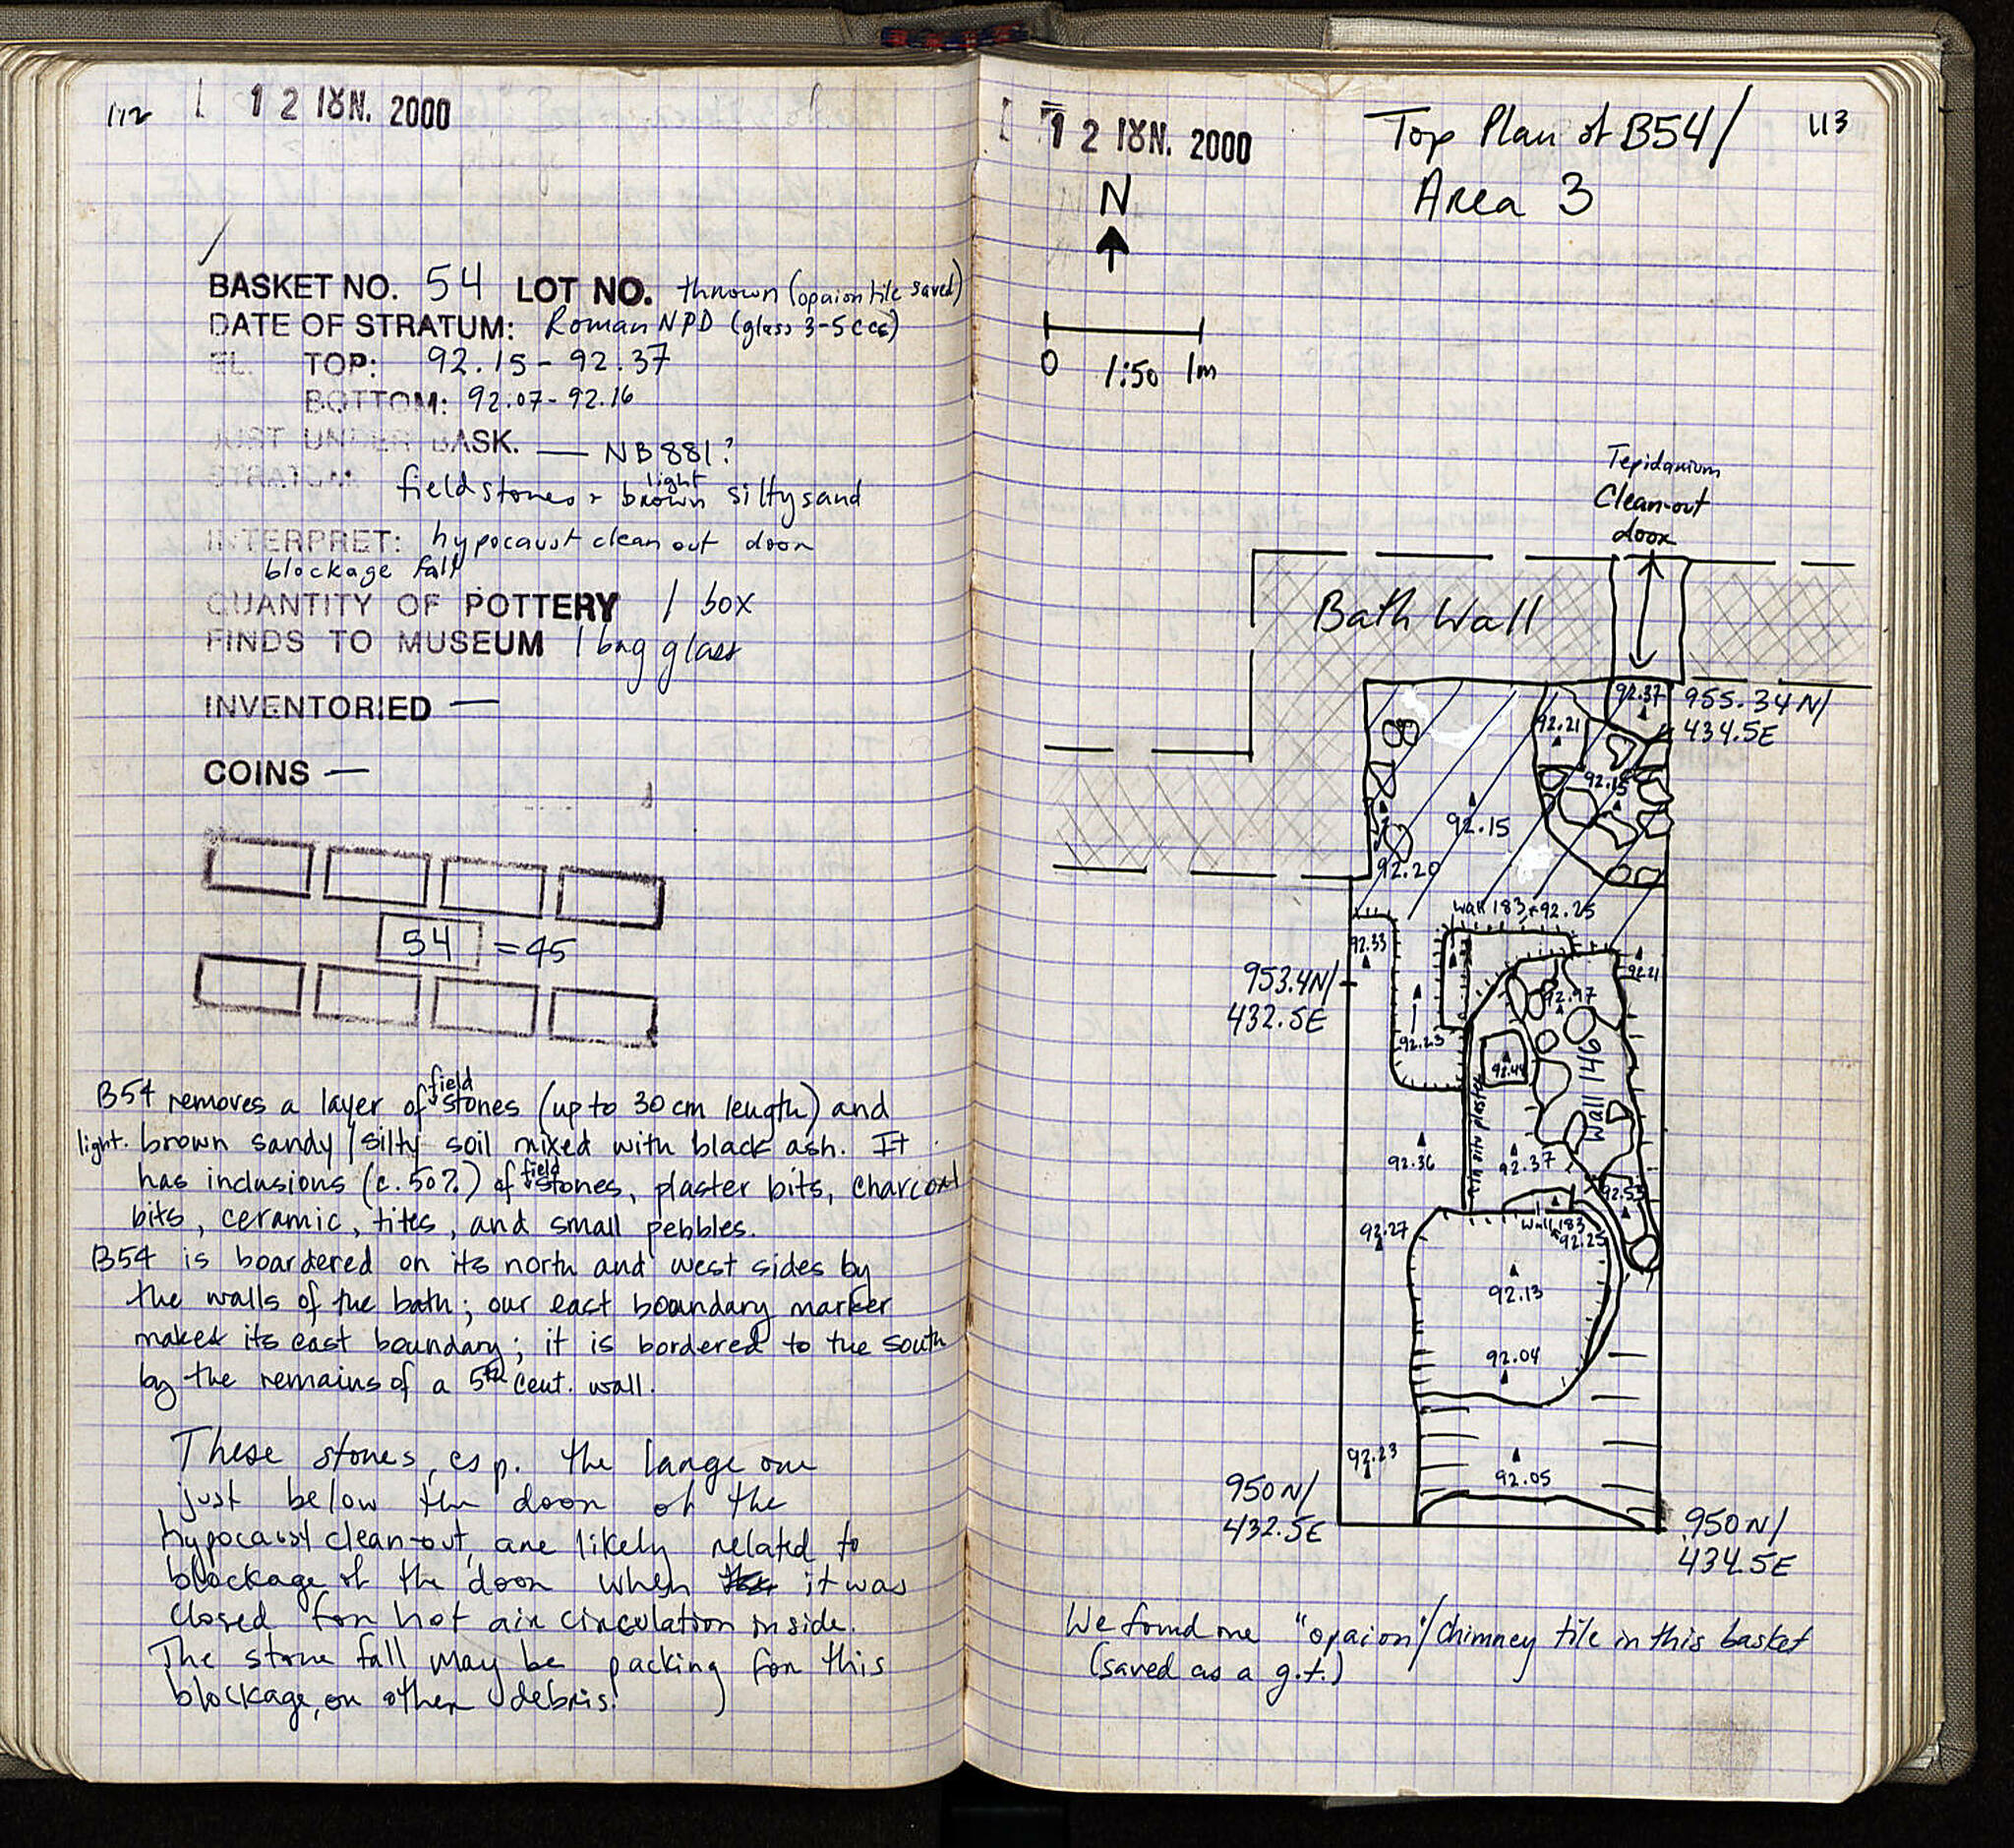 112
12 ΙΟΥΝ. 2000
BASKET NO. 54 LOT NO. thrown (opaion tile saved)
DATE OF STRATUM: Roman NPD (glass 3-5 ccs)
EL. TOP: 92.15 - 92.37
BOTTOM: 92.07 - 92.16
JUST UNDER BASK. — NB 881?
STRATUM: fieldstones + light brown silty sand
INTERPRET: hypocaust clean out door
blockage fall
QUANTITY OF POTTERY 1 box
FINDS TO MUSEUM 1 bag glass
INVENTORIED —
COINS —
54 = 45
B54 removes a layer of field stones (up to 30 cm length) and
light brown sandy/silty soil mixed with black ash. It
has inclusions (c. 50%) of field stones, plaster bits, charcoal
bits, ceramic, tiles, and small pebbles.
B54 is boardered on its north and west sides by
the walls of the bath; our east boundary marker
makes its east boundary; it is bordered to the south
by the remains of a 5th cent. wall.
These stones, esp. the large one
just below the door of the
hypocaust clean-out, are likely related to
blockage of the door when it was
closed for hot air circulation inside.
The stone fall may be packing for this
blockage, or other debris.
12 ΙΟΥΝ. 2000
Top Plan of B54/
Area 3
113
N
0 1:50 1m
Tepidarium
Clean-out
door
Bath Wall
92.37
955.34N/
434.5E
92.21
92.15
92.15
92.20
Wall 183 92.25
92.33
92.21
953.4N/
432.5E
92.97
92.23
92.44
Wall 146
92.36
92.37
92.53
Wall 183
92.25
92.27
92.13
92.04
92.23
92.05
950N/
432.5E
950N/
434.5E
We found one "opaion"/chimney tile in this basket
(saved as a g.t.)